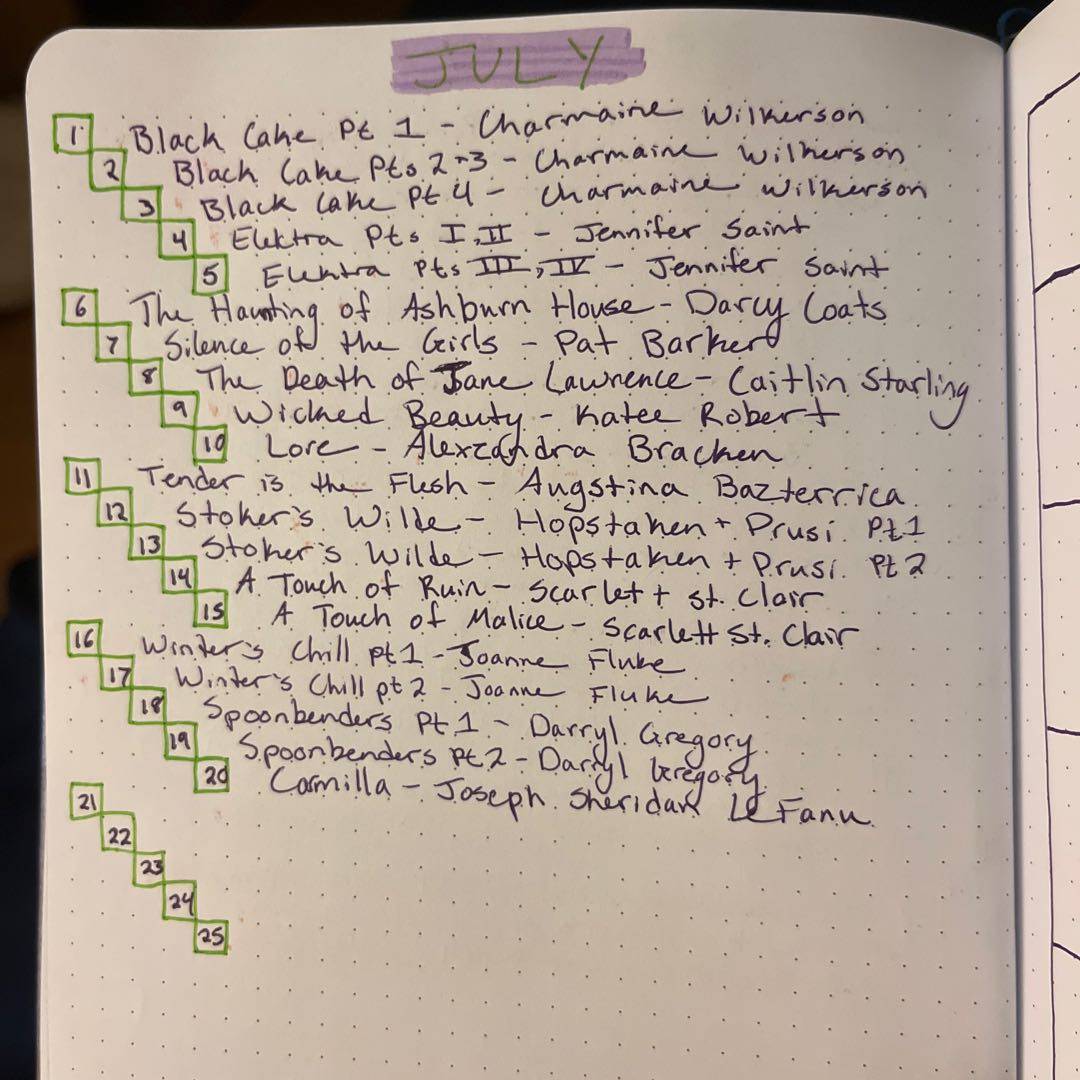 JULY
1 Black Cake Pt 1 - Charmaine Wilkerson
2 Black Cake Pts 2+3 - Charmaine Wilkerson
3 Black Cake Pt 4 - Charmaine Wilkerson
4 Elektra Pts I, II - Jennifer Saint
5 Elektra Pts III, IV - Jennifer Saint
6 The Haunting of Ashburn House - Darcy Coats
7 Silence of the Girls - Pat Barker
8 The Death of Jane Lawrence - Caitlin Starling
9 Wicked Beauty - Katee Robert
10 Lore - Alexzandra Bracken
11 Tender is the Flesh - Augstina Bazterrica
12 Stoker's Wilde - Hopstaken + Prusi Pt 1
13 Stoker's Wilde - Hopstaken + Prusi Pt 2
14 A Touch of Ruin - Scarlett St. Clair
15 A Touch of Malice - Scarlett St. Clair
16 Winter's Chill pt 1 - Joanne Fluke
17 Winter's Chill pt 2 - Joanne Fluke
18 Spoonbenders Pt 1 - Darryl Gregory
19 Spoonbenders Pt 2 - Darryl Gregory
20 Carmilla - Joseph Sheridan Le Fanu
21
22
23
24
25